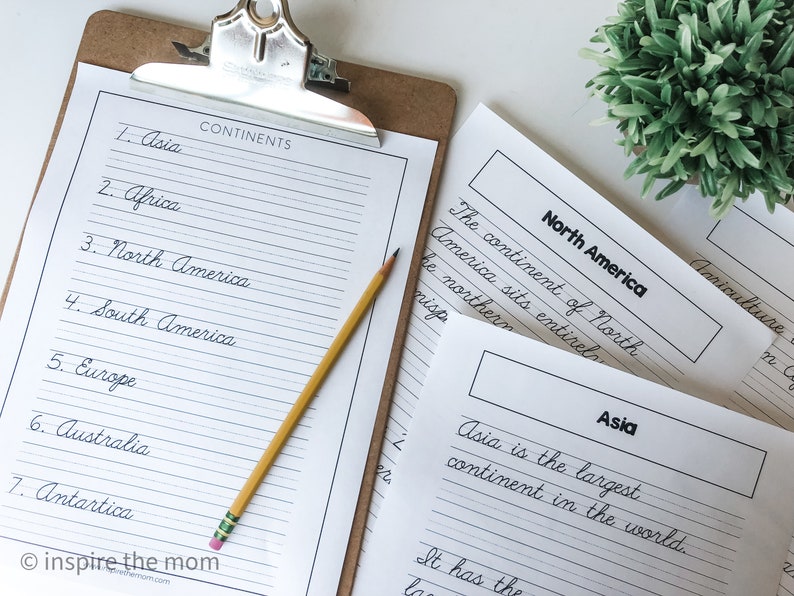 CONTINENTS
1. Asia
2. Africa
3. North America
4. South America
5. Europe
6. Australia
7. Antartica
© inspire the mom
www.inspirethemom.com
North America
The continent of North
America sits entirely
northern
Asia
Asia is the largest
continent in the world.
It has the
Agriculture